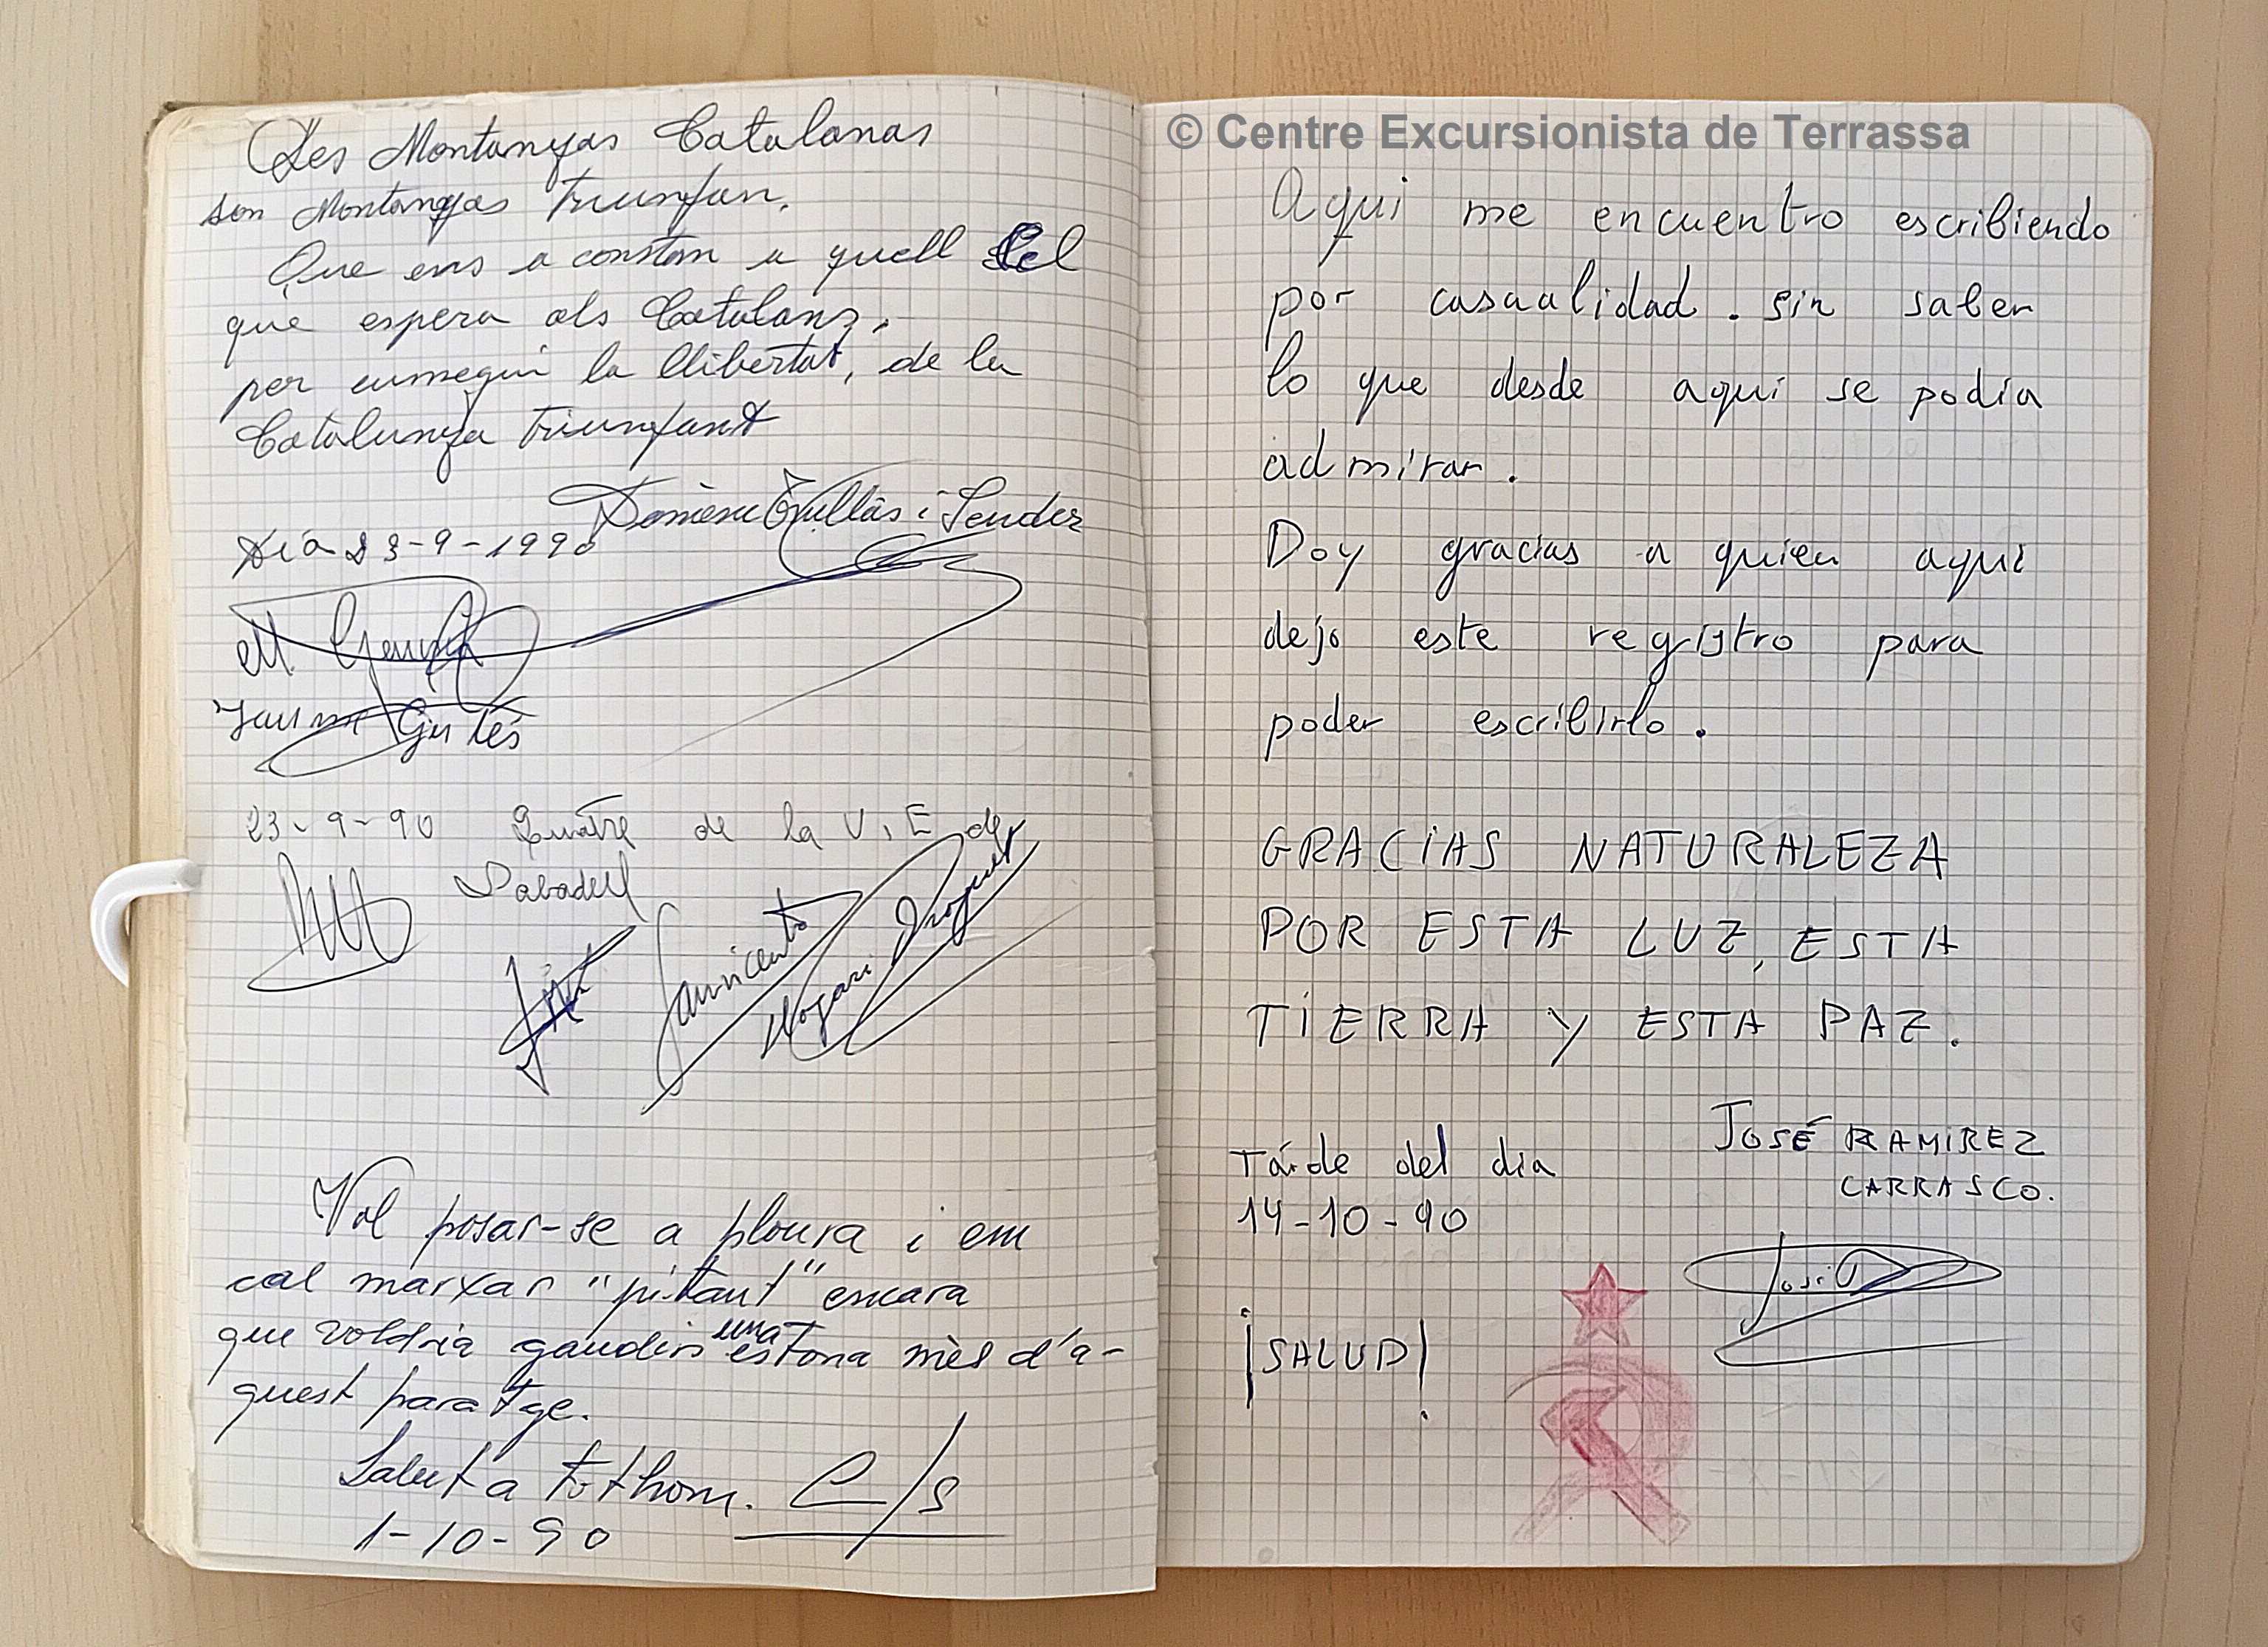 Les Montanyas Catalanas
son Montanyas triunfan,
Que ens a constan a quell cel
que espera als Catalans,
per cumsegui la llibertat, de la
Catalunya triunfant
Domènec Trullàs i Sender
Dia 23-9-1990
M.
Jaume
23-9-90 Quatre de la U.E de
Sabadell
Vol posar-se a ploura i em
cal marxar "pitant" encara
que voldria gaudir una estona mès d'a-
quest paratge.
Salut a tothom. C/s
1-10-90
© Centre Excursionista de Terrassa
Aqui me encuentro escribiendo
por casualidad. sin saber
lo que desde aqui se podia
admirar.
Doy gracias a quien aqui
dejo este registro para
poder escribirlo.
GRACIAS NATURALEZA
POR ESTA LUZ, ESTA
TIERRA Y ESTA PAZ.
JOSÉ RAMIREZ
CARRASCO.
Tarde del dia
14-10-90
¡SALUD!